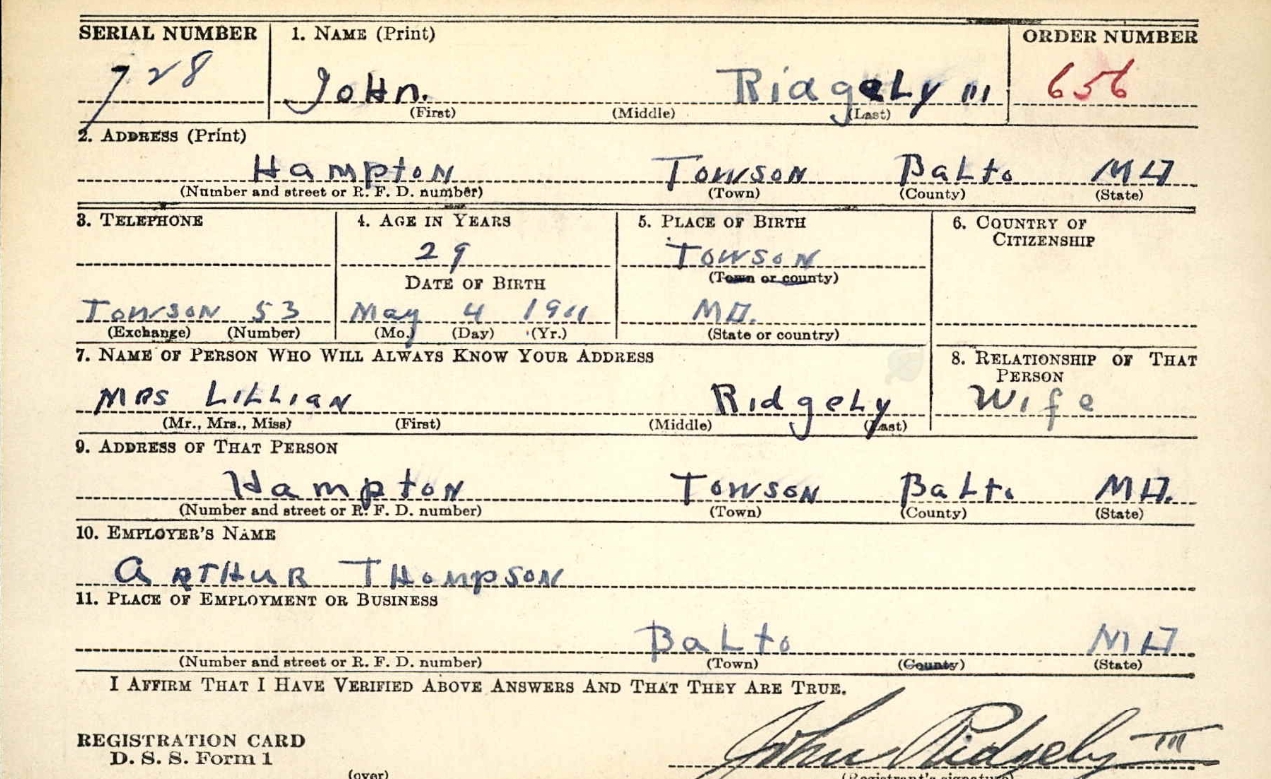 SERIAL NUMBER 1. NAME (Print) ORDER NUMBER
728 John. Ridgely III 656
(First) (Middle) (Last)
2. ADDRESS (Print)
Hampton Towson Balto MD
(Number and street or R. F. D. number) (Town) (County) (State)
3. TELEPHONE 4. AGE IN YEARS 5. PLACE OF BIRTH 6. COUNTRY OF CITIZENSHIP
29 Towson
DATE OF BIRTH (Town or county)
Towson 53 May 4 1911 MD.
(Exchange) (Number) (Mo.) (Day) (Yr.) (State or country)
7. NAME OF PERSON WHO WILL ALWAYS KNOW YOUR ADDRESS 8. RELATIONSHIP OF THAT PERSON
MRS LILLIAN Ridgely Wife
(Mr., Mrs., Miss) (First) (Middle) (Last)
9. ADDRESS OF THAT PERSON
Hampton Towson Balto MD.
(Number and street or R. F. D. number) (Town) (County) (State)
10. EMPLOYER'S NAME
ARTHUR THOMPSON
11. PLACE OF EMPLOYMENT OR BUSINESS
Balto MD
(Number and street or R. F. D. number) (Town) (County) (State)
I AFFIRM THAT I HAVE VERIFIED ABOVE ANSWERS AND THAT THEY ARE TRUE.
REGISTRATION CARD
D. S. S. Form 1 John Ridgely III
(over) (Registrant's signature)